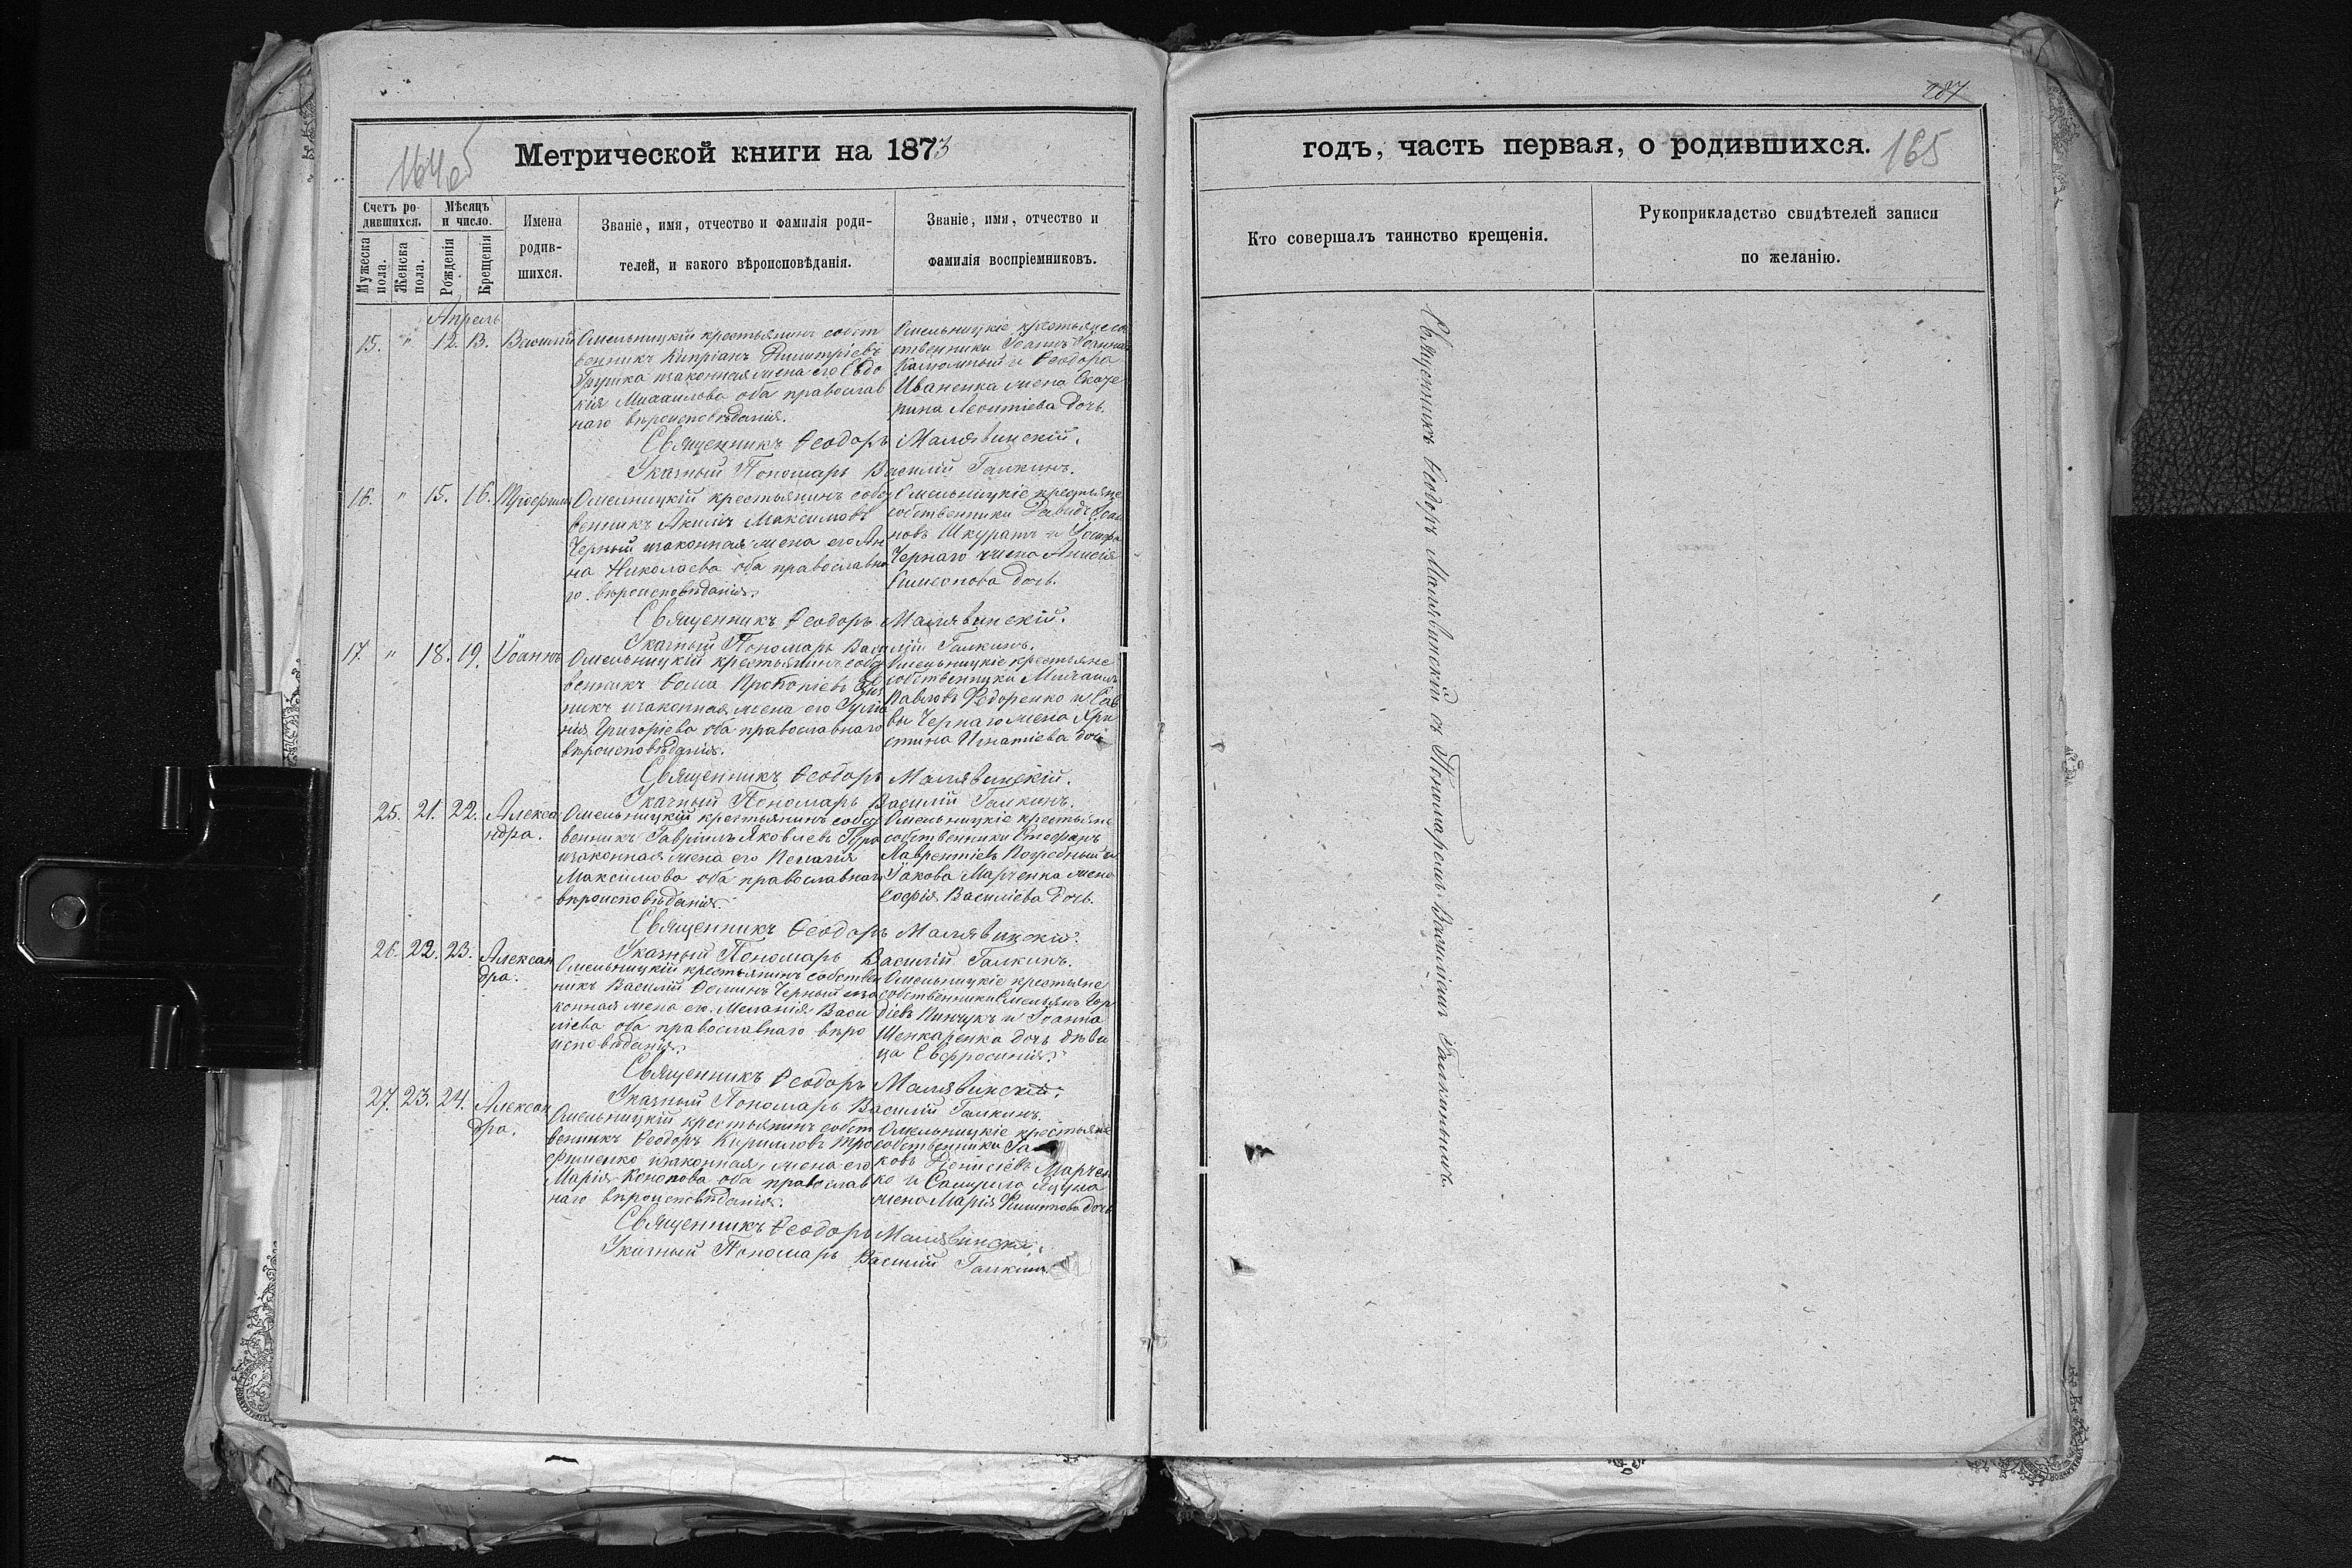 164об
Метрической книги на 1873
Счетъ ро-
дившихся.
Мѣсяцъ
и число.
Имена
родив-
шихся.
Званіе, имя, отчество и фамилія роди-
телей, и какого вѣроисповѣданія.
Званіе, имя, отчество и
фамилія воспріемниковъ.
Мужеска
пола.
Женска
пола.
Рожденія
Крещенія
Апрель
15. " 12. 13. Василий
Омельницкій крестьянинъ собст
венникъ Кипріанъ Димитріевъ
Грушка изаконная жена его Евдо
кія Михаилова оба православ
наго вѣроисповѣданія.
Омельницкіе крестьяне со
ственники Іоаннъ
и Ѳеодора
Иваненка жена Екате
рина Леонтіева дочь.
Священникъ Ѳеодоръ Малявинскій.
Указный Пономарь Василій Галкинъ.
16. " 15. 16. Трофимъ
Омелницкій крестьянинъ собст
венникъ Акимъ Максимовъ
Черный изаконная жена его Ан
на Николаева оба православна
го вѣроисповѣданія.
Омельницкіе крестьяне
собственники Давидъ Іоан
новъ Шкуратъ и Іосифа
Чернаго жена Анисія
Симеонова дочь.
Священникъ Ѳеодоръ Малявинскій.
Указный Пономарь Василій Галкинъ.
17. " 18. 19. Іоаннъ
Омельницкій крестьянинъ собст
венникъ Ѳома Прокопіевъ
никъ изаконная жена его Іулiа
нія Григоріева оба православнаго
вѣроисповѣданія.
Омельницкіе крестьяне
собственники Михаилъ
Павловъ Федоренко и Сав
вы Чернаго жена Хри
стина Игнатіева дочь
Священникъ Ѳеодоръ Малявинскій.
Указный Пономарь Василій Галкинъ.
25. 21. 22. Алекса
ндра.
Омельницкій крестьянинъ собст
венникъ Гавріилъ Яковлевъ
изаконная жена его Пелагія
Максимова оба православнаго
вѣроисповѣданія.
Омельницкіе крестьяне
собственники Стефанъ
Лаврентіевъ Погребный и
Іакова Марченка жена
Софія Василіева дочь.
Священникъ Ѳеодоръ Малявинскій.
Указный Пономарь Василій Галкинъ.
26. 22. 23. Алексан
дра.
Омельницкій крестьянинъ собствен
никъ Василій Ѳоминъ Черный иза
конная жена его Меланія Васи
ліева оба православнаго вѣро
исповѣданія.
Омельницкіе крестьяне
собственники Емельянъ Гор
діевъ Пинчукъ и Іоанна
Шенкаренка дочь дѣви
ца Евфросинія.
Священникъ Ѳеодоръ Малявинскій.
Указный Пономарь Василій Галкинъ.
27. 23. 24. Алексан
дра.
Омельницкій крестьянинъ собст
венникъ Ѳеодоръ Кирилловъ Тро
фименко изаконная жена его
Марія Кононова оба православ
наго вѣроисповѣданія.
Омельницкіе крестьяне
собственники Іа
ковъ Діонисіевъ Марчен
ко и Самуила Яцуна
жена Марія Филиппова дочь
Священникъ Ѳеодоръ Малявинскій.
Указный Пономарь Василій Галкинъ.
287
годъ, часть первая, о родившихся.
165
Кто совершалъ таинство крещенія.
Рукоприкладство свидѣтелей записи
по желанію.
Священникъ Ѳеодоръ Малявинскій съ Пономаремъ Василіемъ Галкинымъ.